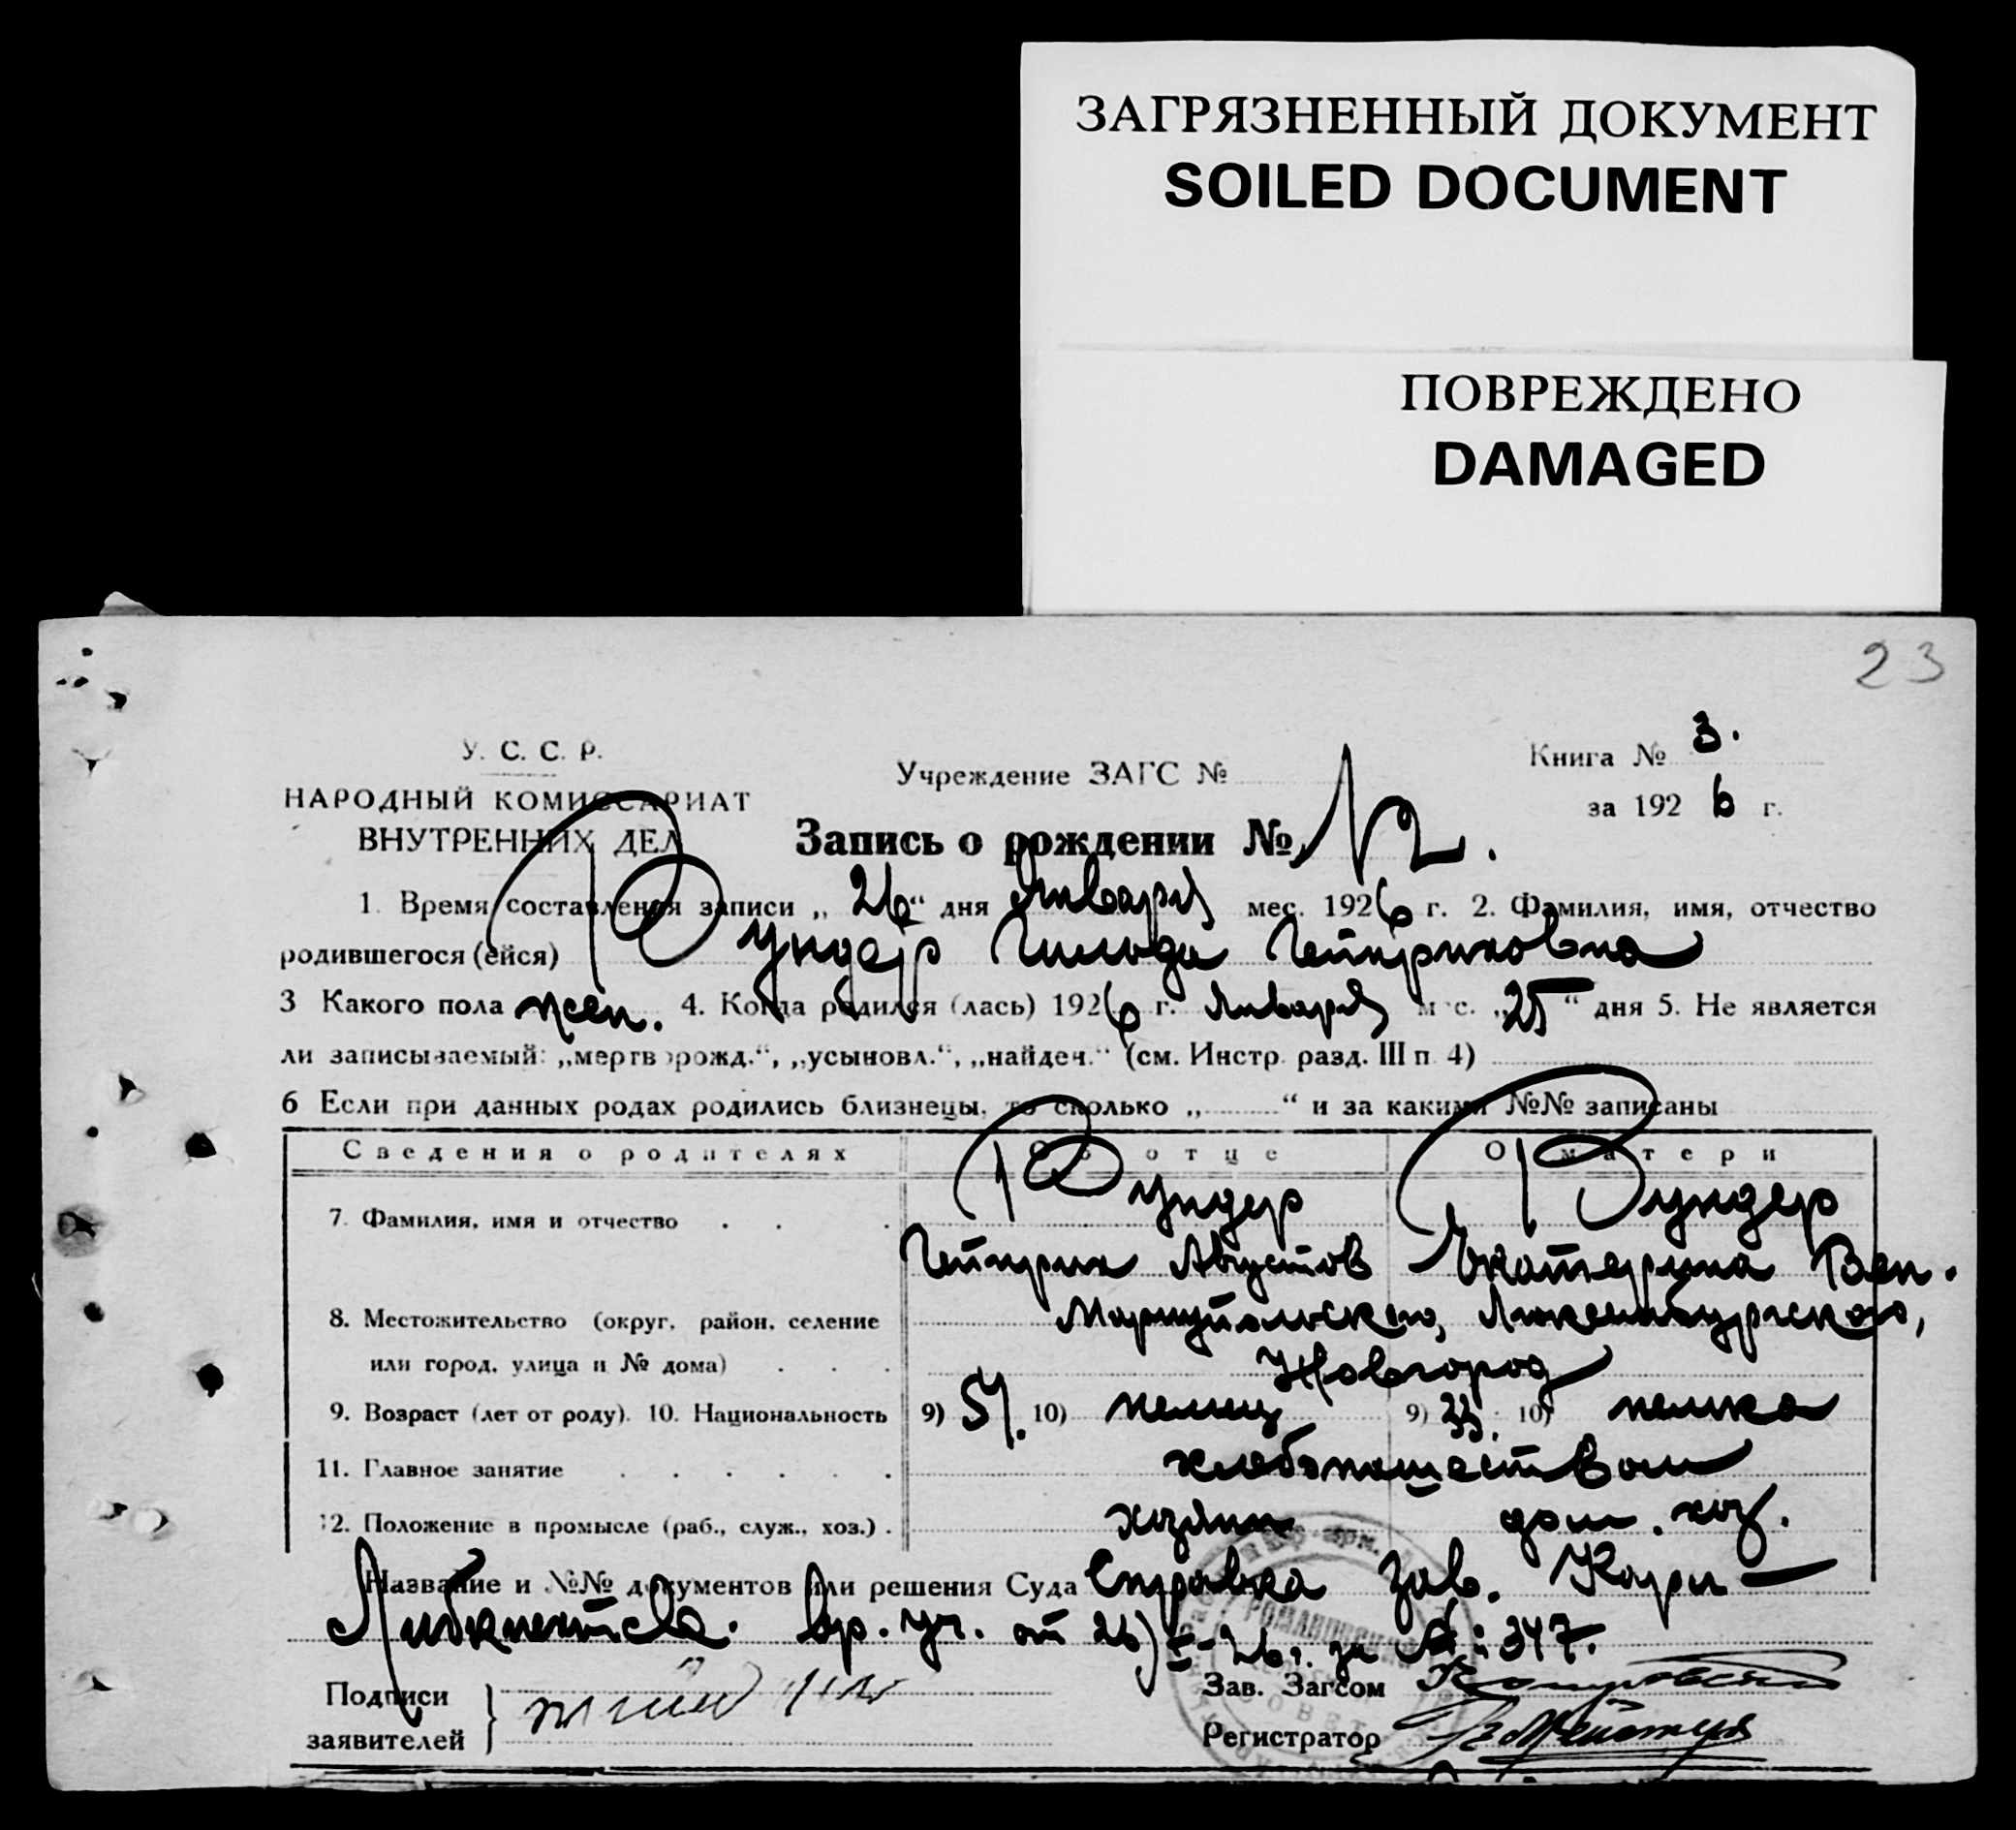 ЗАГРЯЗНЕННЫЙ ДОКУМЕНТ
SOILED DOCUMENT
ПОВРЕЖДЕНО
DAMAGED
23
У. С. С. Р.
НАРОДНЫЙ КОМИССАРИАТ
ВНУТРЕННИХ ДЕЛ
Учреждение ЗАГС №
Книга № 3.
за 1926 г.
Запись о рождении № 12.
1. Время составления записи „26“ дня Января мес. 1926 г. 2. Фамилия, имя, отчество
родившегося (ейся) Рундер Гильда Гейнриховна
3 Какого пола жен. 4. Когда родился (лась) 1926 г. Января мес. „25“ дня 5. Не является
ли записываемый: „мертворожд.“, „усыновл.“, „найден.“ (см. Инстр. разд. III п. 4)
6 Если при данных родах родились близнецы, то сколько „ “ и за какими №№ записаны
Сведения о родителях Об отце О матери
7. Фамилия, имя и отчество Рундер Рундер
Гейнрих Августов Екатерина Вен.
8. Местожительство (округ, район, селение Мариупольского, Люксембургского,
или город, улица и № дома) Новгород
9. Возраст (лет от роду). 10. Национальность 9) 10) немец 9) 33. 10) немка
11. Главное занятие хлебопашеством
12. Положение в промысле (раб., служ., хоз.) хозяин дом. хоз.
Название и №№ документов или решения Суда Справка Зав. Карл–
Либкнетсва. вр. уч. от 26/I-26 г. за №: 347.
Подписи
заявителей
Зав. Загсом
Регистратор